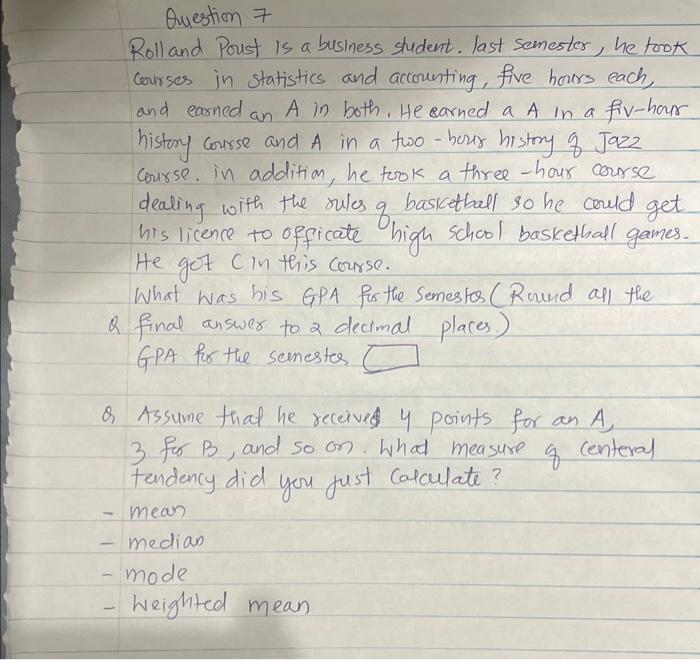 Question 7
Rolland Poust is a business student. last semester, he took
Courses in statistics and accounting, five hours each,
and earned an A in both. He earned a A in a fiv-hour
history course and A in a two-hour history of Jazz
course. in addition, he took a three-hour course
dealing with the rules of basketball so he could get
his licence to officate high school basketball games.
He got C in this course.
What was his GPA for the Semester (Round all the
Q final answer to 2 decimal places.)
GPA for the semester
Q Assume that he received 4 points for an A,
3 for B, and so on. What measure of centeral
tendency did you just Calculate?
- mean
- median
- mode
- Weighted mean